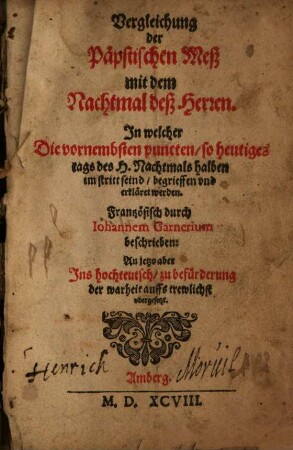 Vergleichung
der
Päpstischen Meß
mit dem
Nachtmal deß Herren.
In welcher
Die vornembsten puncten/ so heutiges
tags des H. Nachtmals halben
im stritt seind/ begrieffen vnd
erkläret werden.
Frantzösisch durch
Iohannem Garnerium
beschrieben:
An jetzo aber
Ins hochteutsch/ zu befürderung
der warheit auffs trewlichst
vbergesetzt.
Henrich
Amberg.
M. D. XCVIII.